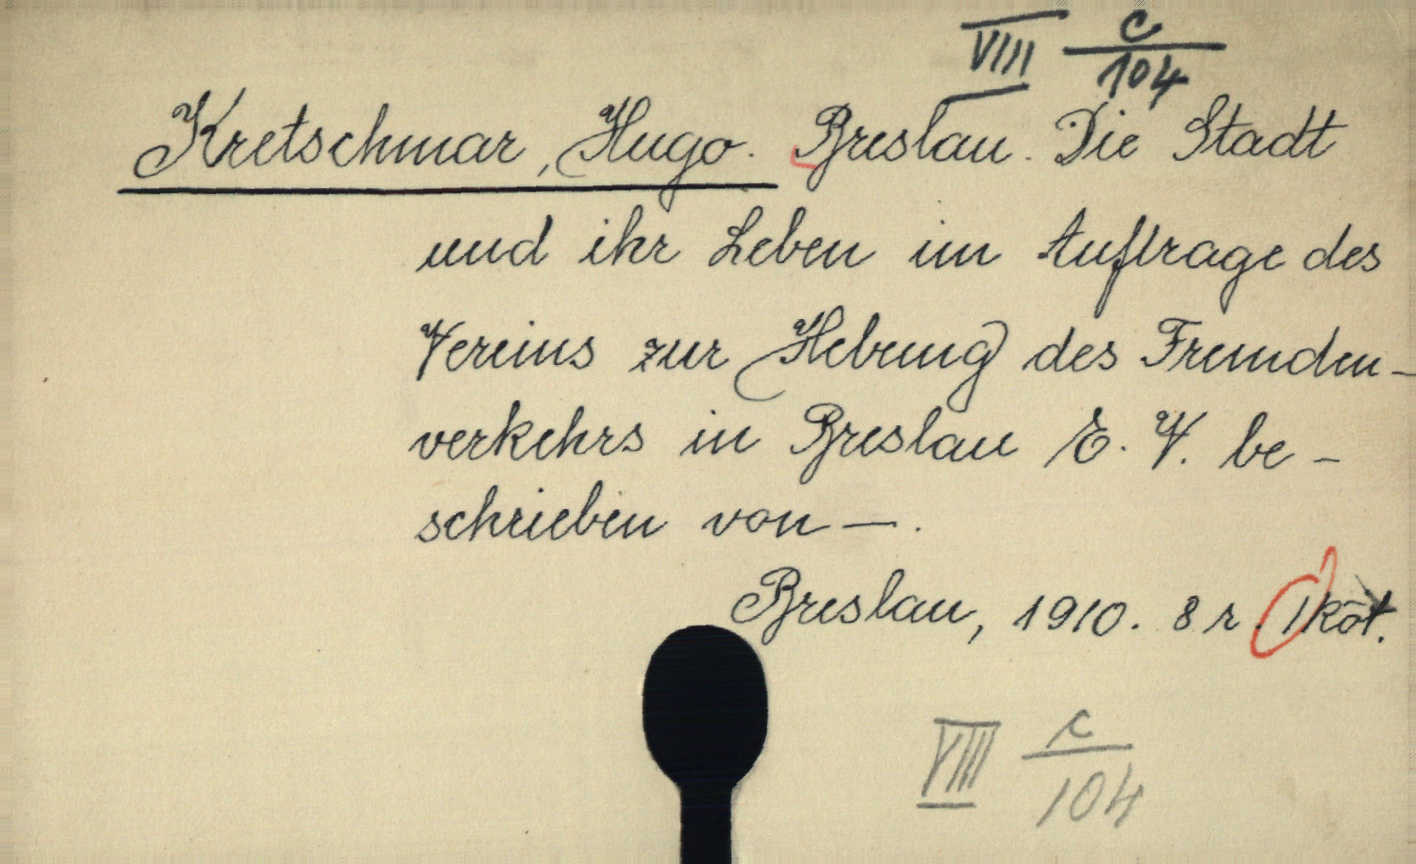 VIII c/104
Kretschmar, Hugo. Breslau. Die Stadt
und ihr Leben im Auftrage des
Vereins zur Hebung des Fremden-
verkehrs in Breslau E. V. be-
schrieben von —.
Breslau, 1910. 8 r. 1 köt.
VIII c/104